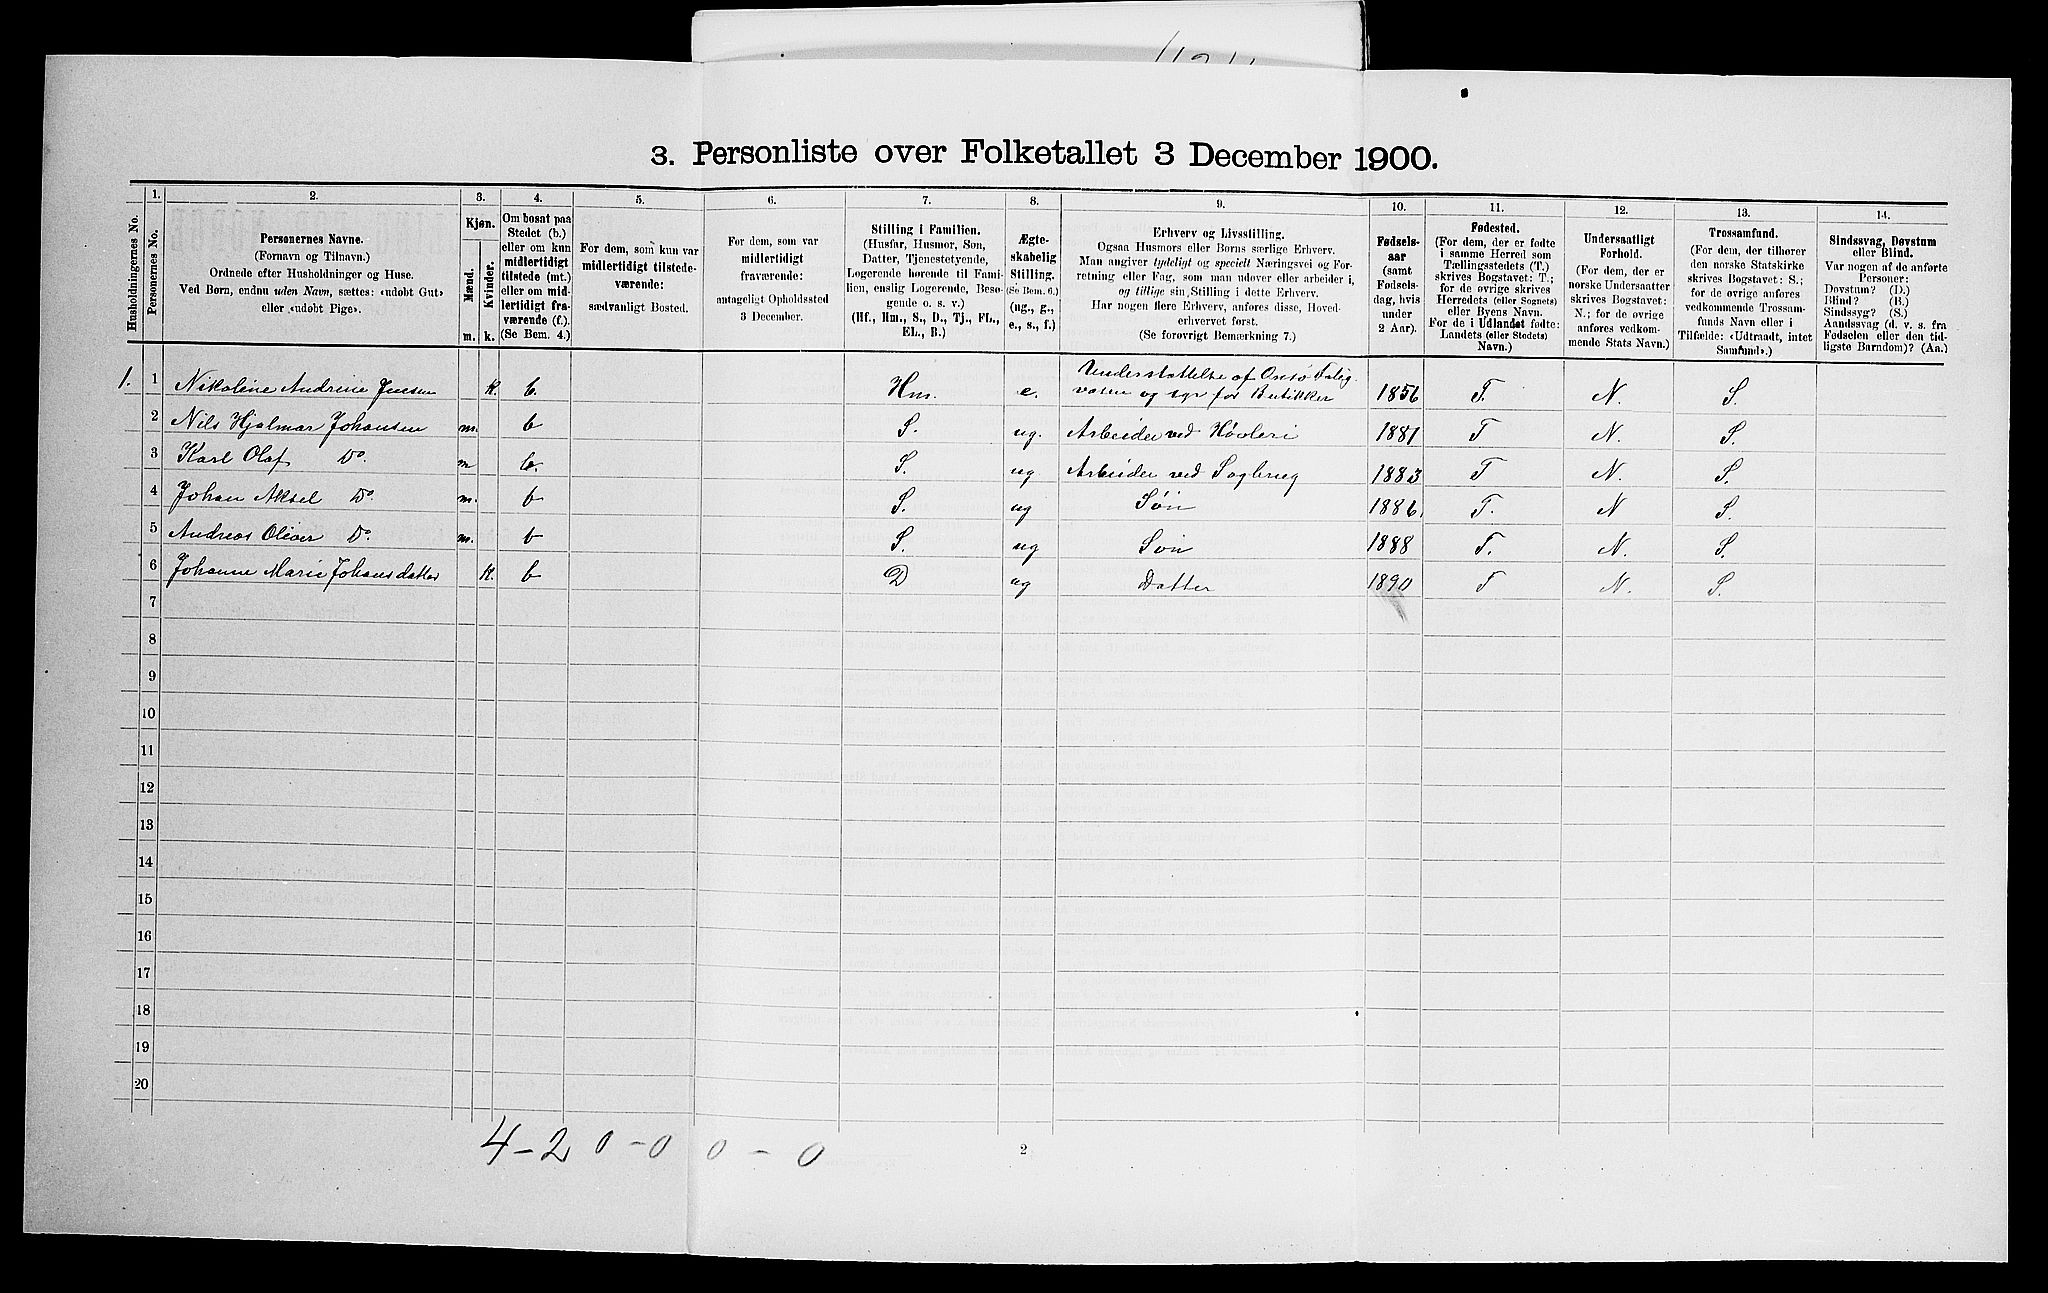 3. Personliste over Folketallet 3 December 1900.
Husholdningernes No.
1.
Personernes No.
2.
Personernes Navne.
(Fornavn og Tilnavn.)
Ordnede efter Husholdninger og Huse.
Ved Børn, endnu uden Navn, sættes: «udøbt Gut»
eller «udøbt Pige».
3.
Kjøn.
Mænd.
Kvinder.
m. k.
4.
Om bosat paa
Stedet (b.)
eller om kun
midlertidigt
tilstede (mt.)
eller om mid-
lertidigt fra-
værende (f.).
(Se Bem. 4.)
5.
For dem, som kun var
midlertidigt tilstede-
værende:
sædvanligt Bosted.
6.
For dem, som var
midlertidigt
fraværende:
antageligt Opholdssted
3 December.
7.
Stilling i Familien.
(Husfar, Husmor, Søn,
Datter, Tjenestetyende,
Logerende hørende til Fami-
lien, enslig Logerende, Besø-
gende o. s. v.)
(Hf., Hm., S., D., Tj., FL.,
EL., B.)
8.
Ægte-
skabelig
Stilling.
(Se Bem. 6.)
(ug., g.,
e., s., f.)
9.
Erhverv og Livsstilling.
Ogsaa Husmors eller Børns særlige Erhverv.
Man angiver tydeligt og specielt Næringsvei og For-
retning eller Fag, som man udøver eller arbeider i,
og tillige sin Stilling i dette Erhverv.
Har nogen flere Erhverv, anføres disse, Hoved-
erhvervet først.
(Se forøvrigt Bemærkning 7.)
10.
Fødsels-
aar
(samt
Fødsels-
dag, hvis
under
2 Aar).
11.
Fødested.
(For dem, der er fødte
i samme Herred som
Tællingsstedets (T.)
skrives Bogstavet: T.;
for de øvrige skrives
Herredets (eller Sognets)
eller Byens Navn.
For de i Udlandet fødte:
Landets (eller Stedets)
Navn.)
12.
Undersaatligt
Forhold.
(For dem, der er
norske Undersaatter
skrives Bogstavet:
N.; for de øvrige
anføres vedkom-
mende Stats Navn.)
13.
Trossamfund.
(For dem, der tilhører
den norske Statskirke
skrives Bogstavet: S.;
for de øvrige anføres
vedkommende Trossam-
funds Navn eller i
Tilfælde: «Udtraadt, intet
Samfund».)
14.
Sindssvag, Døvstum
eller Blind.
Var nogen af de anførte
Personer:
Døvstum? (D.)
Blind? (B.)
Sindssyg? (S.)
Aandssvag (d. v. s. fra
Fødselen eller den tid-
ligste Barndom)? (Aa.)
1. 1 Nikoline Andrine Jensen k. b. Hm. e. Understøttelse af Fatig- 1856 T. N. S.
vasen og syr for Butikker
2 Nils Hjalmar Johansen m. b S. ug. Arbeider ved Høvleri 1881 T N. S.
3 Karl Olaf Do. m b. S. ug Arbeider ved Sagbrug 1883 T N. S.
4 Johan Aksel Do. m. b S. ug Søn 1886. T. N S.
5 Andreas Oliver Do. m. b S. ug Søn 1888 T. N. S.
6 Johanne Marie Johansdatter k. b D ug Datter 1890 T N. S.
7
8
9
10
11
12
13
14
15
16
17
18
19
20
4-2 0-0 0-0
2